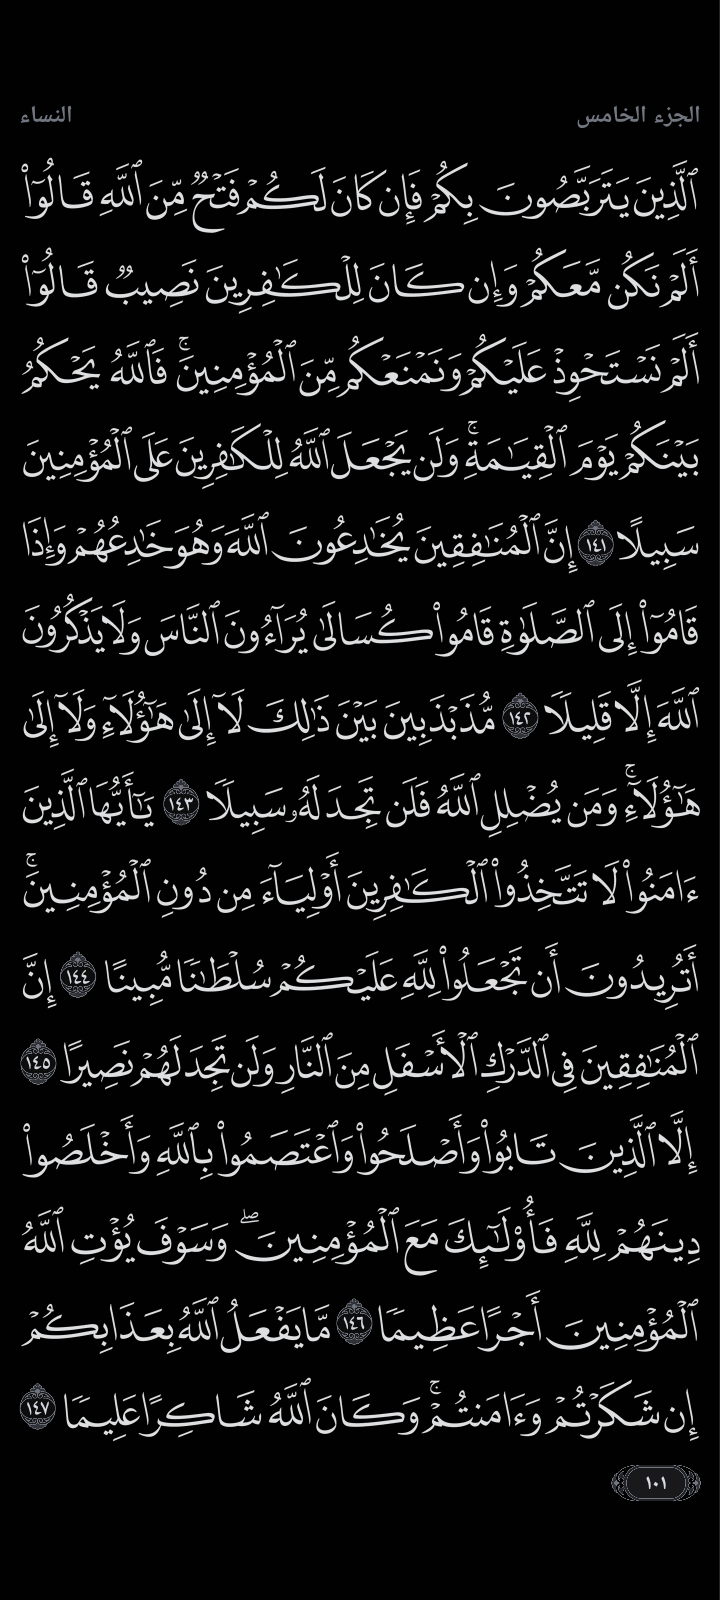 الجزء الخامس
النساء
ٱلَّذِينَ يَتَرَبَّصُونَ بِكُمْ فَإِن كَانَ لَكُمْ فَتْحٌ مِّنَ ٱللَّهِ قَالُوٓا۟
أَلَمْ نَكُن مَّعَكُمْ وَإِن كَانَ لِلْكَـٰفِرِينَ نَصِيبٌ قَالُوٓا۟
أَلَمْ نَسْتَحْوِذْ عَلَيْكُمْ وَنَمْنَعْكُم مِّنَ ٱلْمُؤْمِنِينَ ۚ فَٱللَّهُ يَحْكُمُ
بَيْنَكُمْ يَوْمَ ٱلْقِيَـٰمَةِ ۗ وَلَن يَجْعَلَ ٱللَّهُ لِلْكَـٰفِرِينَ عَلَى ٱلْمُؤْمِنِينَ
سَبِيلًا ١٤١ إِنَّ ٱلْمُنَـٰفِقِينَ يُخَـٰدِعُونَ ٱللَّهَ وَهُوَ خَـٰدِعُهُمْ وَإِذَا
قَامُوٓا۟ إِلَى ٱلصَّلَوٰةِ قَامُوا۟ كُسَالَىٰ يُرَآءُونَ ٱلنَّاسَ وَلَا يَذْكُرُونَ
ٱللَّهَ إِلَّا قَلِيلًا ١٤٢ مُّذَبْذَبِينَ بَيْنَ ذَٰلِكَ لَآ إِلَىٰ هَـٰٓؤُلَآءِ وَلَآ إِلَىٰ
هَـٰٓؤُلَآءِ ۚ وَمَن يُضْلِلِ ٱللَّهُ فَلَن تَجِدَ لَهُۥ سَبِيلًا ١٤٣ يَـٰٓأَيُّهَا ٱلَّذِينَ
ءَامَنُوا۟ لَا تَتَّخِذُوا۟ ٱلْكَـٰفِرِينَ أَوْلِيَآءَ مِن دُونِ ٱلْمُؤْمِنِينَ ۚ
أَتُرِيدُونَ أَن تَجْعَلُوا۟ لِلَّهِ عَلَيْكُمْ سُلْطَـٰنًا مُّبِينًا ١٤٤ إِنَّ
ٱلْمُنَـٰفِقِينَ فِى ٱلدَّرْكِ ٱلْأَسْفَلِ مِنَ ٱلنَّارِ وَلَن تَجِدَ لَهُمْ نَصِيرًا ١٤٥
إِلَّا ٱلَّذِينَ تَابُوا۟ وَأَصْلَحُوا۟ وَٱعْتَصَمُوا۟ بِٱللَّهِ وَأَخْلَصُوا۟
دِينَهُمْ لِلَّهِ فَأُو۟لَـٰٓئِكَ مَعَ ٱلْمُؤْمِنِينَ ۖ وَسَوْفَ يُؤْتِ ٱللَّهُ
ٱلْمُؤْمِنِينَ أَجْرًا عَظِيمًا ١٤٦ مَّا يَفْعَلُ ٱللَّهُ بِعَذَابِكُمْ
إِن شَكَرْتُمْ وَءَامَنتُمْ ۚ وَكَانَ ٱللَّهُ شَاكِرًا عَلِيمًا ١٤٧
١٠١